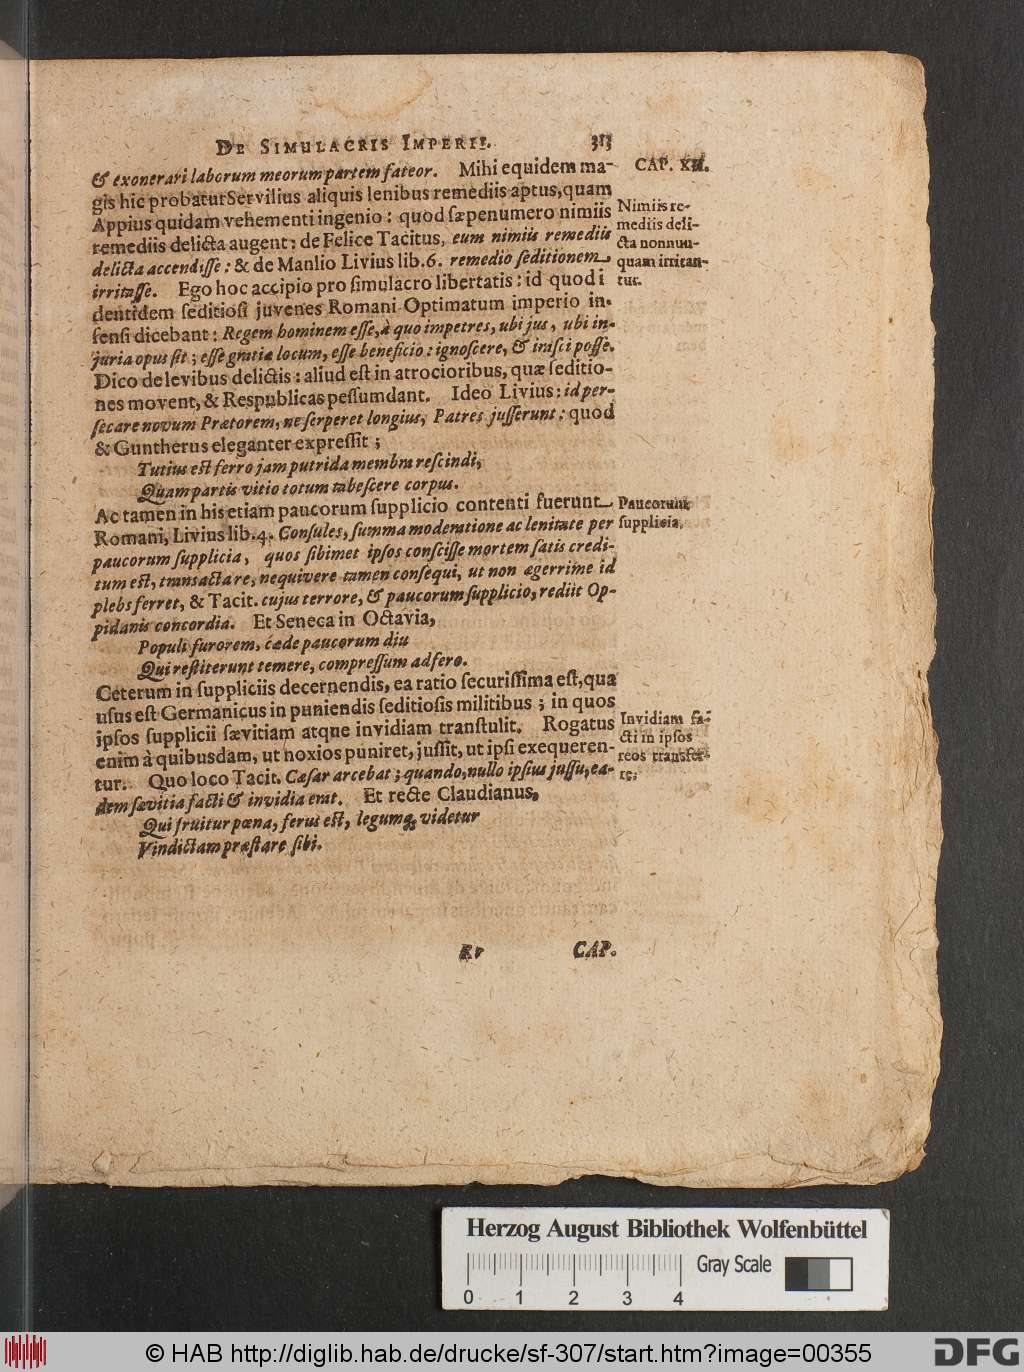 DE SIMULACRIS IMPERII. 313
CAP. XII.
& exonerari laborum meorum partem fateor. Mihi equidem ma-
gis hic probatur Servilius aliquis lenibus remediis aptus, quam
Appius quidam vehementi ingenio: quod sæpenumero nimiis
remediis delicta augent: de Felice Tacitus, eum nimiis remediis
delicta accendisse: & de Manlio Livius lib. 6. remedio seditionem
irritasse. Ego hoc accipio pro simulacro libertatis: id quod i
dentidem seditiosi juvenes Romani Optimatum imperio in-
fensi dicebant: Regem hominem esse, à quo impetres, ubi jus, ubi in-
juria opus sit; esse gratiæ locum, esse beneficio: ignoscere, & irasci posse.
Dico de levibus delictis: aliud est in atrocioribus, quæ seditio-
nes movent, & Respublicas pessumdant. Ideo Livius: id per-
secare novum Prætorem, ne serperet longius, Patres jusserunt: quod
& Guntherus eleganter expressit;
Tutius est ferro jam putrida membra rescindi,
Quam partis vitio totum tabescere corpus.
Ac tamen in his etiam paucorum supplicio contenti fuerunt
Romani, Livius lib. 4. Consules, summa moderatione ac lenitate per
paucorum supplicia, quos sibimet ipsos conscisse mortem satis credi-
tum est, transacta re, nequivere tamen consequi, ut non ægerrime id
plebs ferret, & Tacit. cujus terrore, & paucorum supplicio, rediit Op-
pidanis concordia. Et Seneca in Octavia,
Populi furorem, cæde paucorum diu
Qui restiterunt temere, compressum adfero.
Ceterum in suppliciis decernendis, ea ratio securissima est, qua
usus est Germanicus in puniendis seditiosis militibus; in quos
ipsos supplicii sævitiam atque invidiam transtulit. Rogatus
enim à quibusdam, ut noxios puniret, jussit, ut ipsi exequeren-
tur. Quo loco Tacit. Cæsar arcebat; quando, nullo ipsius jussu, ea-
dem sævitia facti & invidia erat. Et recte Claudianus,
Qui fruitur pœna, ferus est, legumq; videtur
Vindictam præstare sibi.
Nimiis re-
mediis deli-
cta nonnun-
quam irritan-
tur.
Paucorum
supplicia.
Invidiam fa-
cti in ipsos
reos transfer-
re.
Rr CAP.
Herzog August Bibliothek Wolfenbüttel
Gray Scale
0 1 2 3 4
© HAB http://diglib.hab.de/drucke/sf-307/start.htm?image=00355
DFG